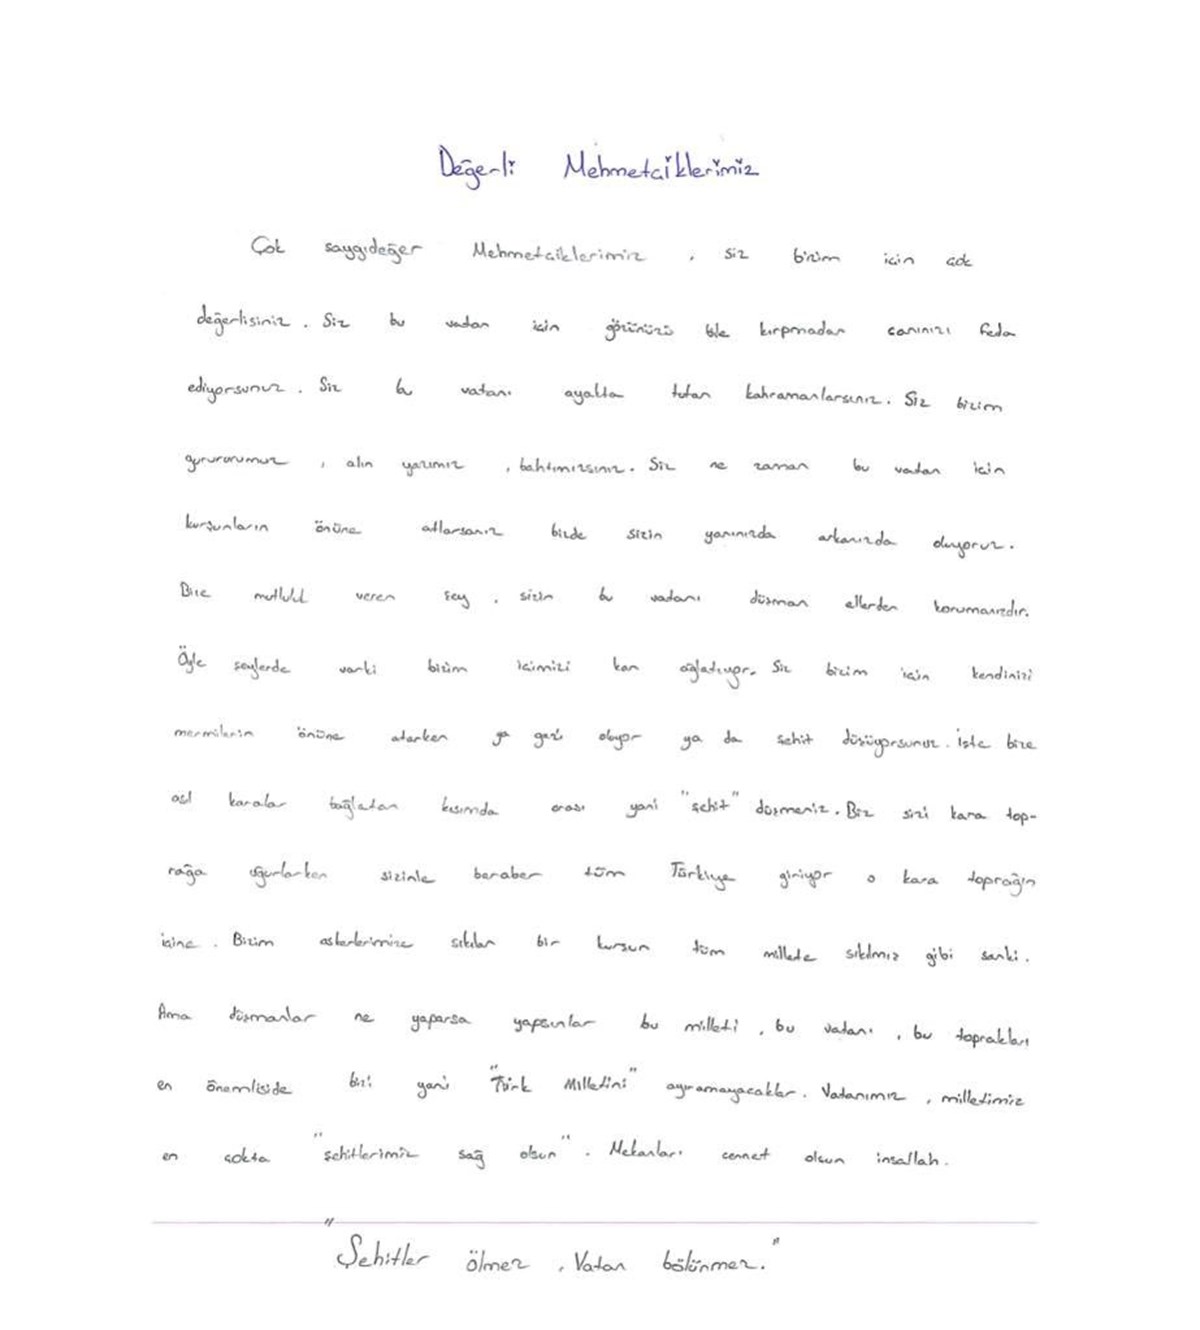 Değerli Mehmetciklerimiz
Çok saygıdeğer Mehmetciklerimiz , siz bizim için çok
değerlisiniz . Siz bu vatan için gözünüzü bile kırpmadan canınızı feda
ediyorsunuz . Siz bu vatanı ayakta tutan kahramanlarsınız . Siz bizim
gururumuz , alın yazımız , bahtımızsınız . Siz ne zaman bu vatan için
kurşunların önüne atlarsanız bizde sizin yanınızda arkanızda duyoruz .
Bize mutluluk veren şey , sizin bu vatanı düşman ellerden korumanızdır.
Öyle şeylerde varki bizim içimizi kan ağlatıyor. Siz bizim için kendinizi
mermilerin önüne atarken ya gazi oluyor ya da şehit düşüyorsunuz . İşte bize
asıl karalar bağlatan kısımda orası yani "şehit" düşmeniz . Biz sizi kara top-
rağa uğurlarken sizinle beraber tüm Türkiye giriyor o kara toprağın
içine . Bizim askerlerimize sıkılan bir kurşun tüm millete sıkılmış gibi sanki .
Ama düşmanlar ne yaparsa yapsınlar bu milleti , bu vatanı , bu toprakları
en önemliside bizi yani "Türk Milletini" ayıramayacaklar . Vatanımız , milletimiz
en çokta "şehitlerimiz sağ olsun" . Mekanları cennet olsun inşallah .
"Şehitler ölmez , Vatan bölünmez."